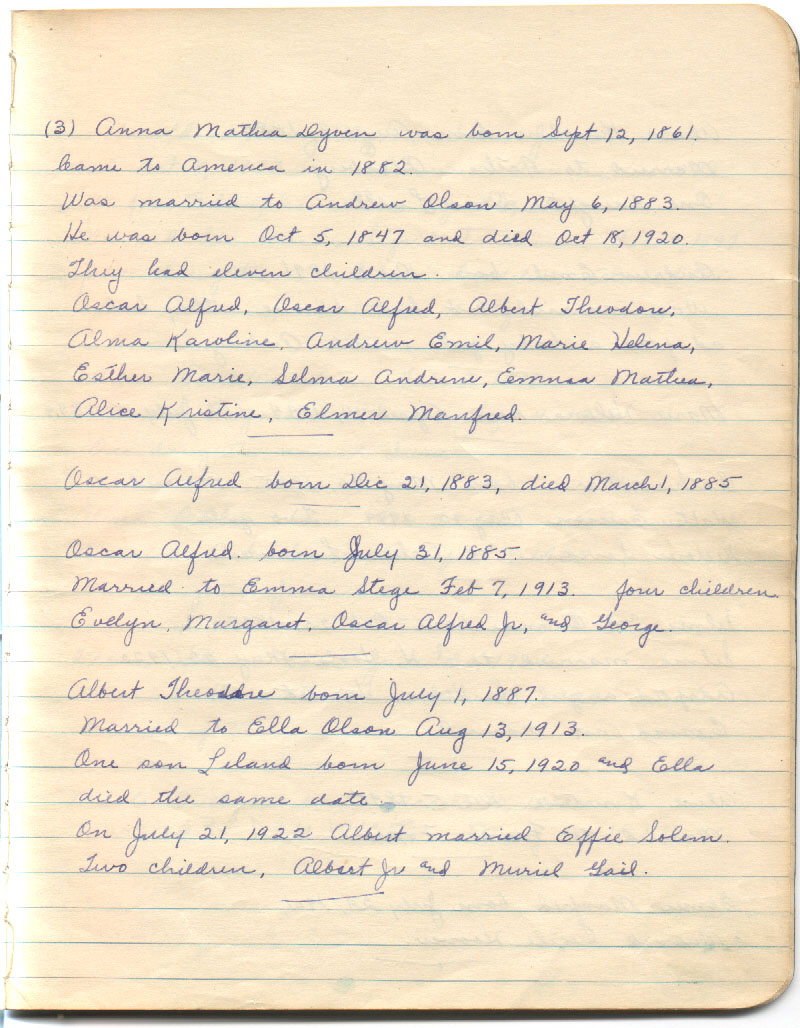 (3) Anna Mathea Dyven was born Sept 12, 1861.
Came to America in 1882.
Was married to Andrew Olson May 6, 1883.
He was born Oct 5, 1847 and died Oct 18, 1920.
They had eleven children.
Oscar Alfred, Oscar Alfred, Albert Theodore,
Alma Karoline, Andrew Emil, Marie Helena,
Esther Marie, Selma Andrine, Emma Mathea,
Alice Kristine, Elmer Manfred.
Oscar Alfred born Dec 21, 1883, died March 1, 1885
Oscar Alfred. born July 31, 1885.
Married to Emma Stege Feb 7, 1913. four children.
Evelyn, Margaret, Oscar Alfred Jr, and George.
Albert Theodore born July 1, 1887.
Married to Ella Olson Aug 13, 1913.
One son Leland born June 15, 1920 and Ella
died the same date.
On July 21, 1922 Albert married Effie Solem.
Two children, Albert Jr and Muriel Gail.